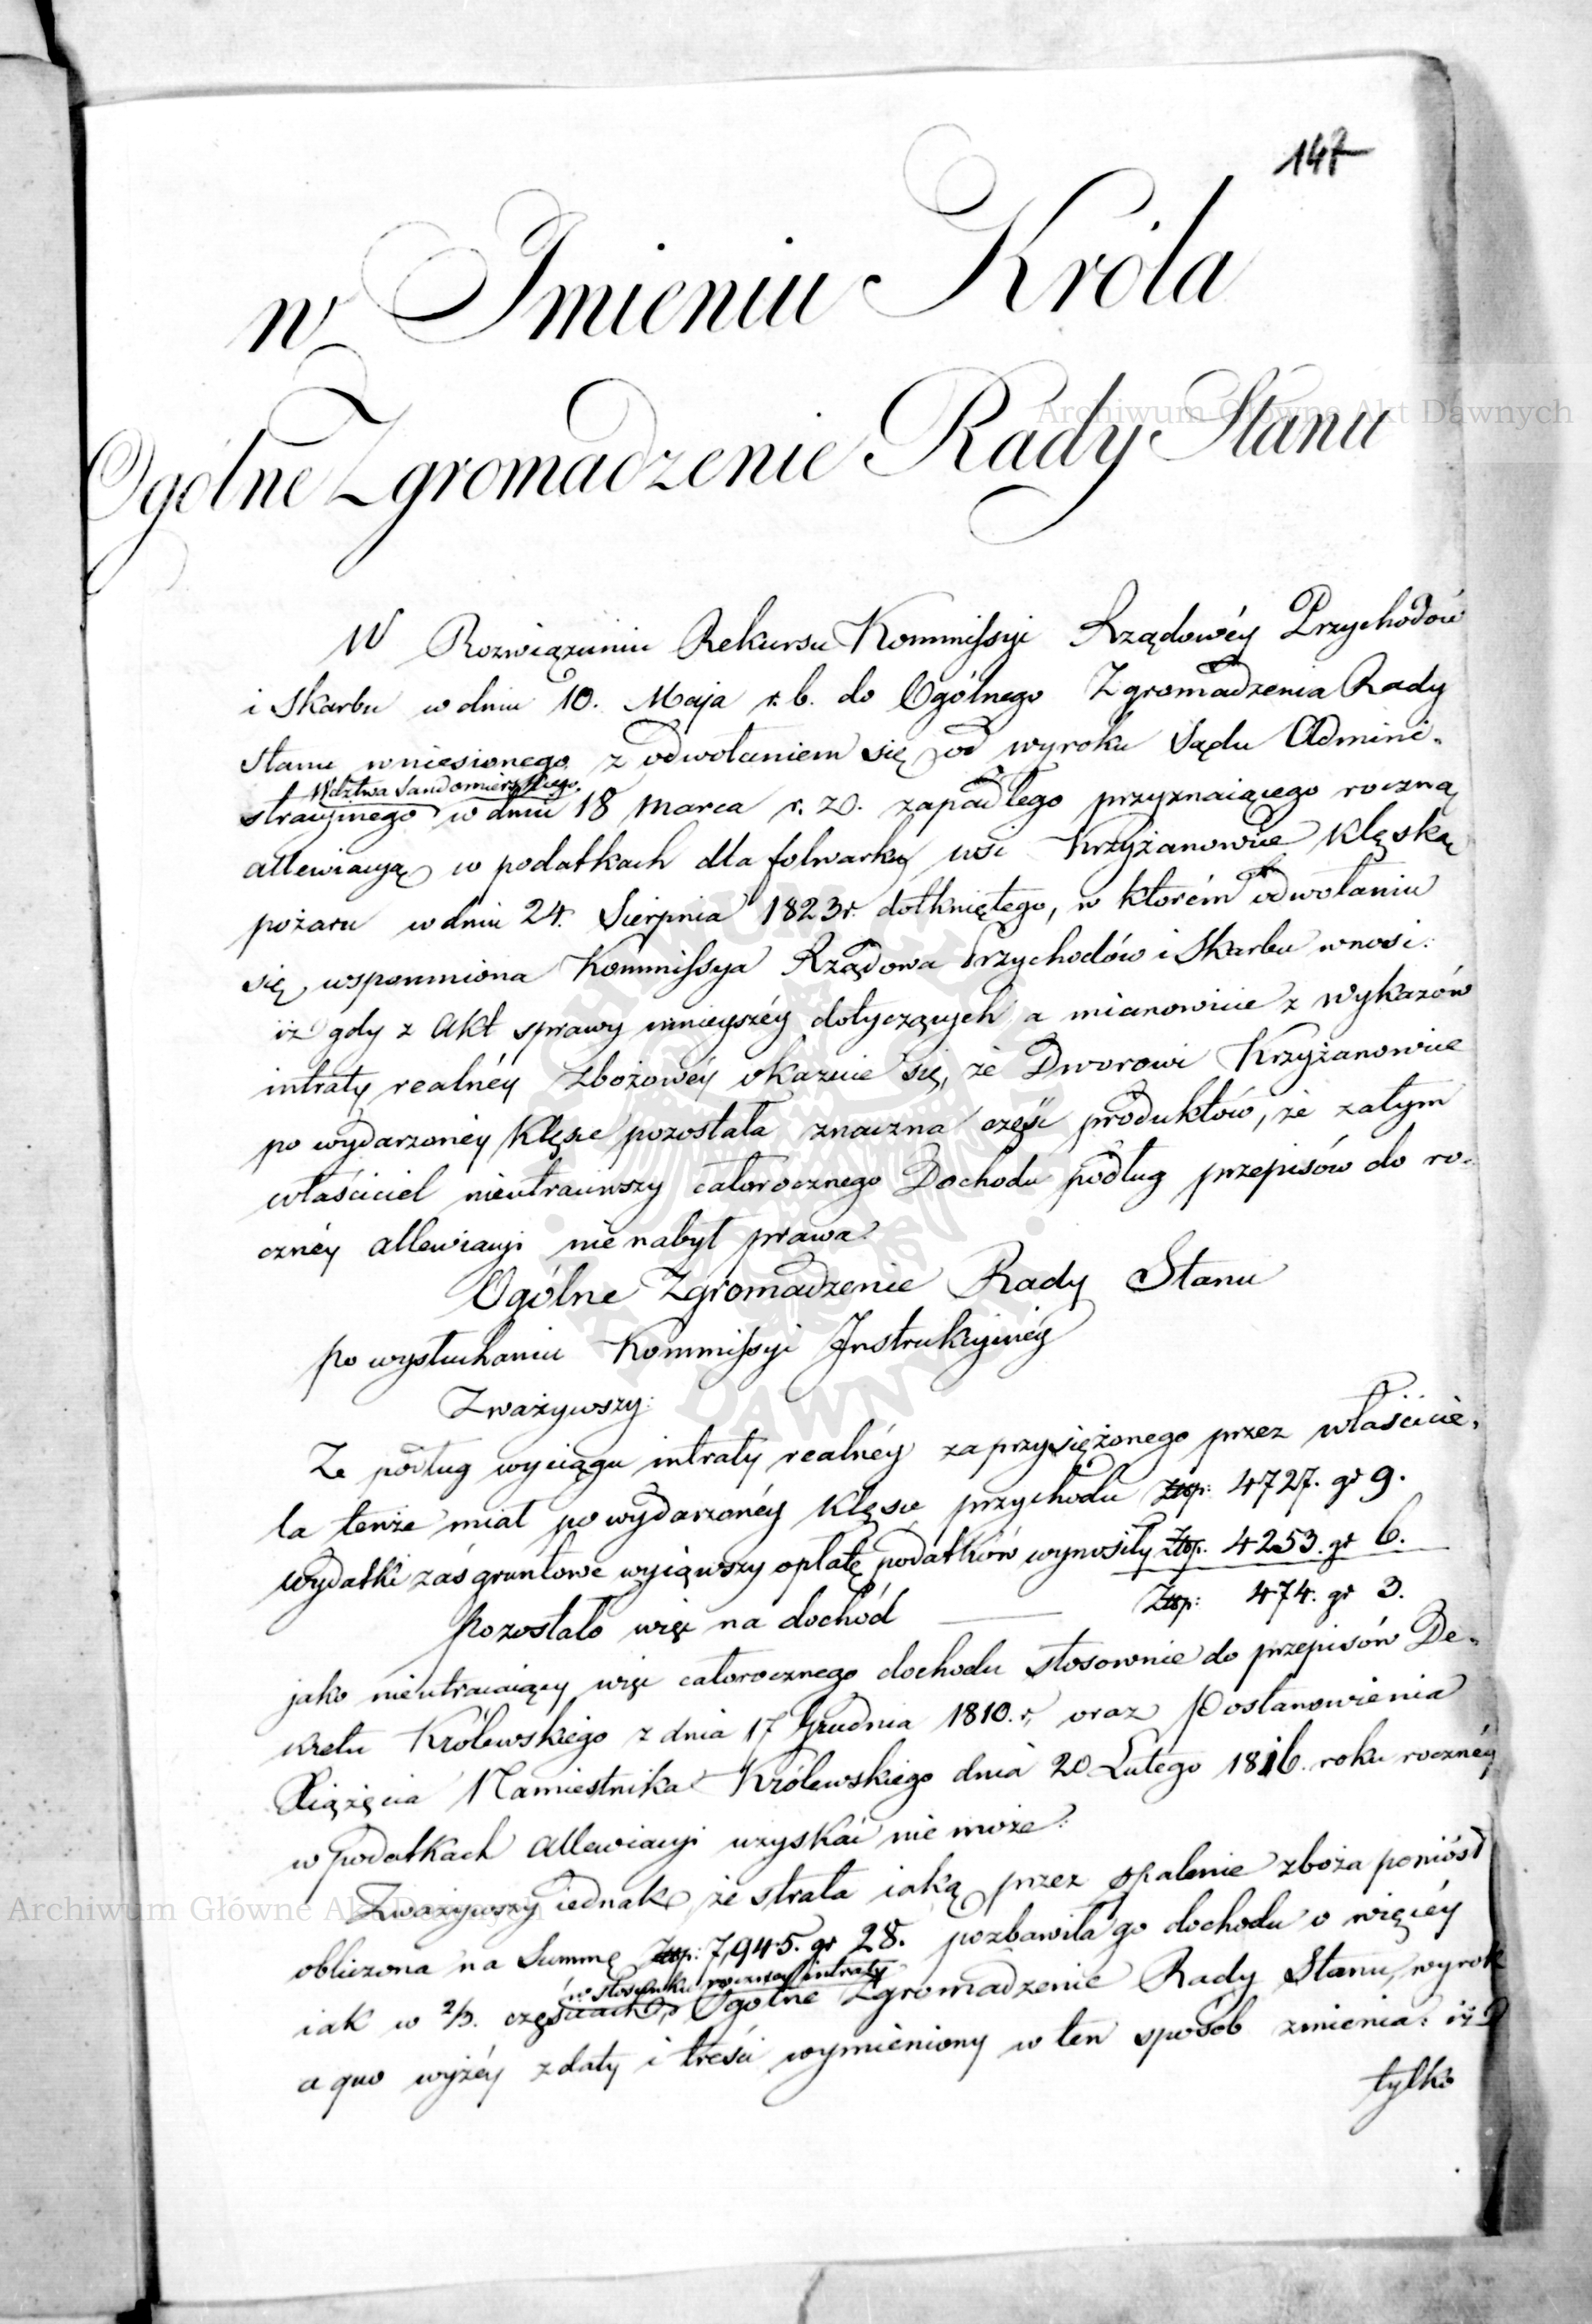 147
w Imieniu Króla
Ogólne Zgromadzenie Rady Stanu
W Rozwiązaniu Rekursu Kommissyi Rządowéy Przychodów
i Skarbu w dniu 10. Maja r. b. do Ogólnego Zgromadzenia Rady
Stanu wniesionego z odwołaniem się od wyroku Sądu Admini-
Wdztwa Sandomierskiego
stracyinego w dniu 18 Marca r. z. zapadłego przyznaiącego roczną
allewiacyą w podatkach dla folwarku wsi Krzyżanowice klęską
pożaru w dniu 24. Sierpnia 1823 r. dotkniętego, w którém odwołaniu
się, wspomniona Kommissya Rządowa Przychodów i Skarbu wnosi:
iż gdy z Akt sprawy ninieyszéy dotyczących a mianowicie z wykazów
intraty realnéy zbożowéy okazuie się, że Dworowi Krzyżanowice
po wydarzonéy klęsce pozostała znaczna część produktów, że zatym
właściciel nieutraciwszy całorocznego Dochodu podług przepisów do ro-
cznéy allewiacyi nie nabył prawa.
Ogólne Zgromadzenie Rady Stanu
po wysłuchaniu Kommissyi Instrukcyinéy
Zważywszy:
Że podług wyciągu intraty realnéy zaprzysiężonego przez właścicie-
la tenże miał po wydarzonéy klęsce przychodu Złp: 4727. gr 9.
wydatki zaś gruntowe wyiąwszy opłatę podatków wynosiły Złp. 4253. gr 6.
Pozostało więc na dochód Złp: 474. gr 3.
jako nieutracaiący więc całorocznego dochodu stosownie do przepisów De-
kretu Królewskiego z dnia 17 Grudnia 1810. r, oraz Postanowienia
Xiążęcia Namiestnika Królewskiego dnia 20 Lutego 1816. roku rocznéy
w podatkach allewiacyi uzyskać nie może.
Zważywszy iednak, że strata iaką przez spalenie zboża poniósł
obliczona na Summę Złp: 7,945. gr 28. pozbawiła go dochodu o więcéy
w stosunku roczney intraty
iak w 2/3. częściach, Ogólne Zgromadzenie Rady Stanu, wyrok
a quo wyżéy z daty i treści wymieniony w ten sposób zmienia: iż
tylko
Archiwum Główne Akt Dawnych
Archiwum Główne Akt Dawnych